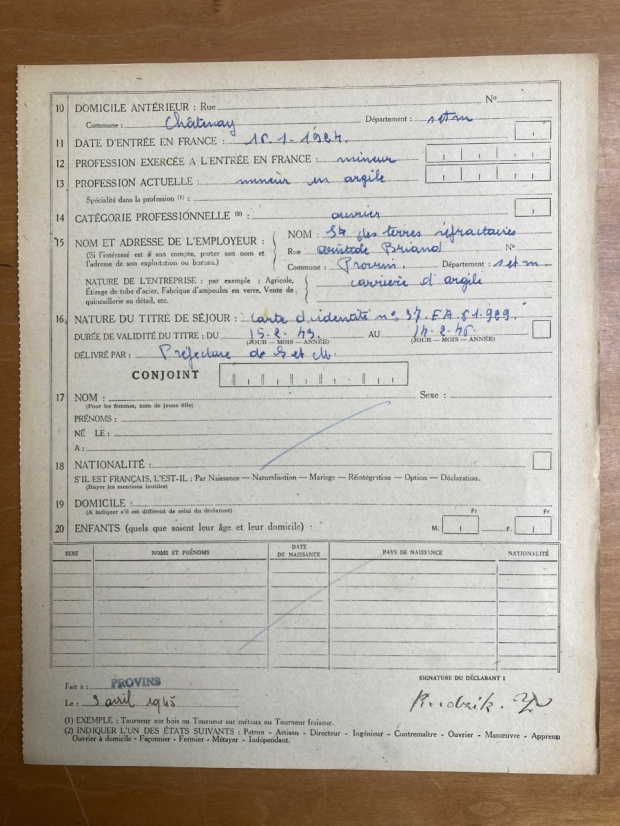 10 DOMICILE ANTÉRIEUR : Rue Nº
Commune : Châtenay Département : set m
11 DATE D'ENTRÉE EN FRANCE : 1924.
12 PROFESSION EXERCÉE A L'ENTRÉE EN FRANCE : mineur
13 PROFESSION ACTUELLE : mineur en argile
Spécialité dans la profession (1) :
14 CATÉGORIE PROFESSIONNELLE (2) : ouvrier
15 NOM ET ADRESSE DE L'EMPLOYEUR :
(Si l'intéressé est à son compte, porter son nom et
l'adresse de son exploitation ou bureau.)
NOM : Sté des terres réfractaires
Rue Aristide Briand Nº
Commune : Provins. Département : set m
NATURE DE L'ENTREPRISE : par exemple : Agricole,
Étirage de tube d'acier, Fabrique d'ampoules en verre, Vente de
quincaillerie au détail, etc.
carrière d'argile
16 NATURE DU TITRE DE SÉJOUR : Carte d'identité nº
DURÉE DE VALIDITÉ DU TITRE : DU 15.2.43. AU 14.2.46.
(JOUR — MOIS — ANNÉE) (JOUR — MOIS — ANNÉE)
DÉLIVRÉ PAR : Préfecture de S et M.
CONJOINT
17 NOM : Sexe :
(Pour les femmes, nom de jeune fille)
PRÉNOMS :
NÉ LE :
A :
18 NATIONALITÉ :
S'IL EST FRANÇAIS, L'EST-IL : Par Naissance — Naturalisation — Mariage — Réintégration — Option — Déclaration.
(Rayer les mentions inutiles)
19 DOMICILE :
(A indiquer s'il est différent de celui du déclarant)
Fr Fr
20 ENFANTS (quels que soient leur âge et leur domicile) : M. F.
SEXE NOMS ET PRÉNOMS DATE DE NAISSANCE PAYS DE NAISSANCE NATIONALITÉ
Fait à : PROVINS
SIGNATURE DU DÉCLARANT :
Le : 3 avril 1945
(1) EXEMPLE : Tourneur sur bois ou Tourneur sur métaux ou Tourneur fraiseur.
(2) INDIQUER L'UN DES ÉTATS SUIVANTS : Patron - Artisan - Directeur - Ingénieur - Contremaître - Ouvrier - Manœuvre - Apprenti
Ouvrier à domicile - Façonnier - Fermier - Métayer - Indépendant.